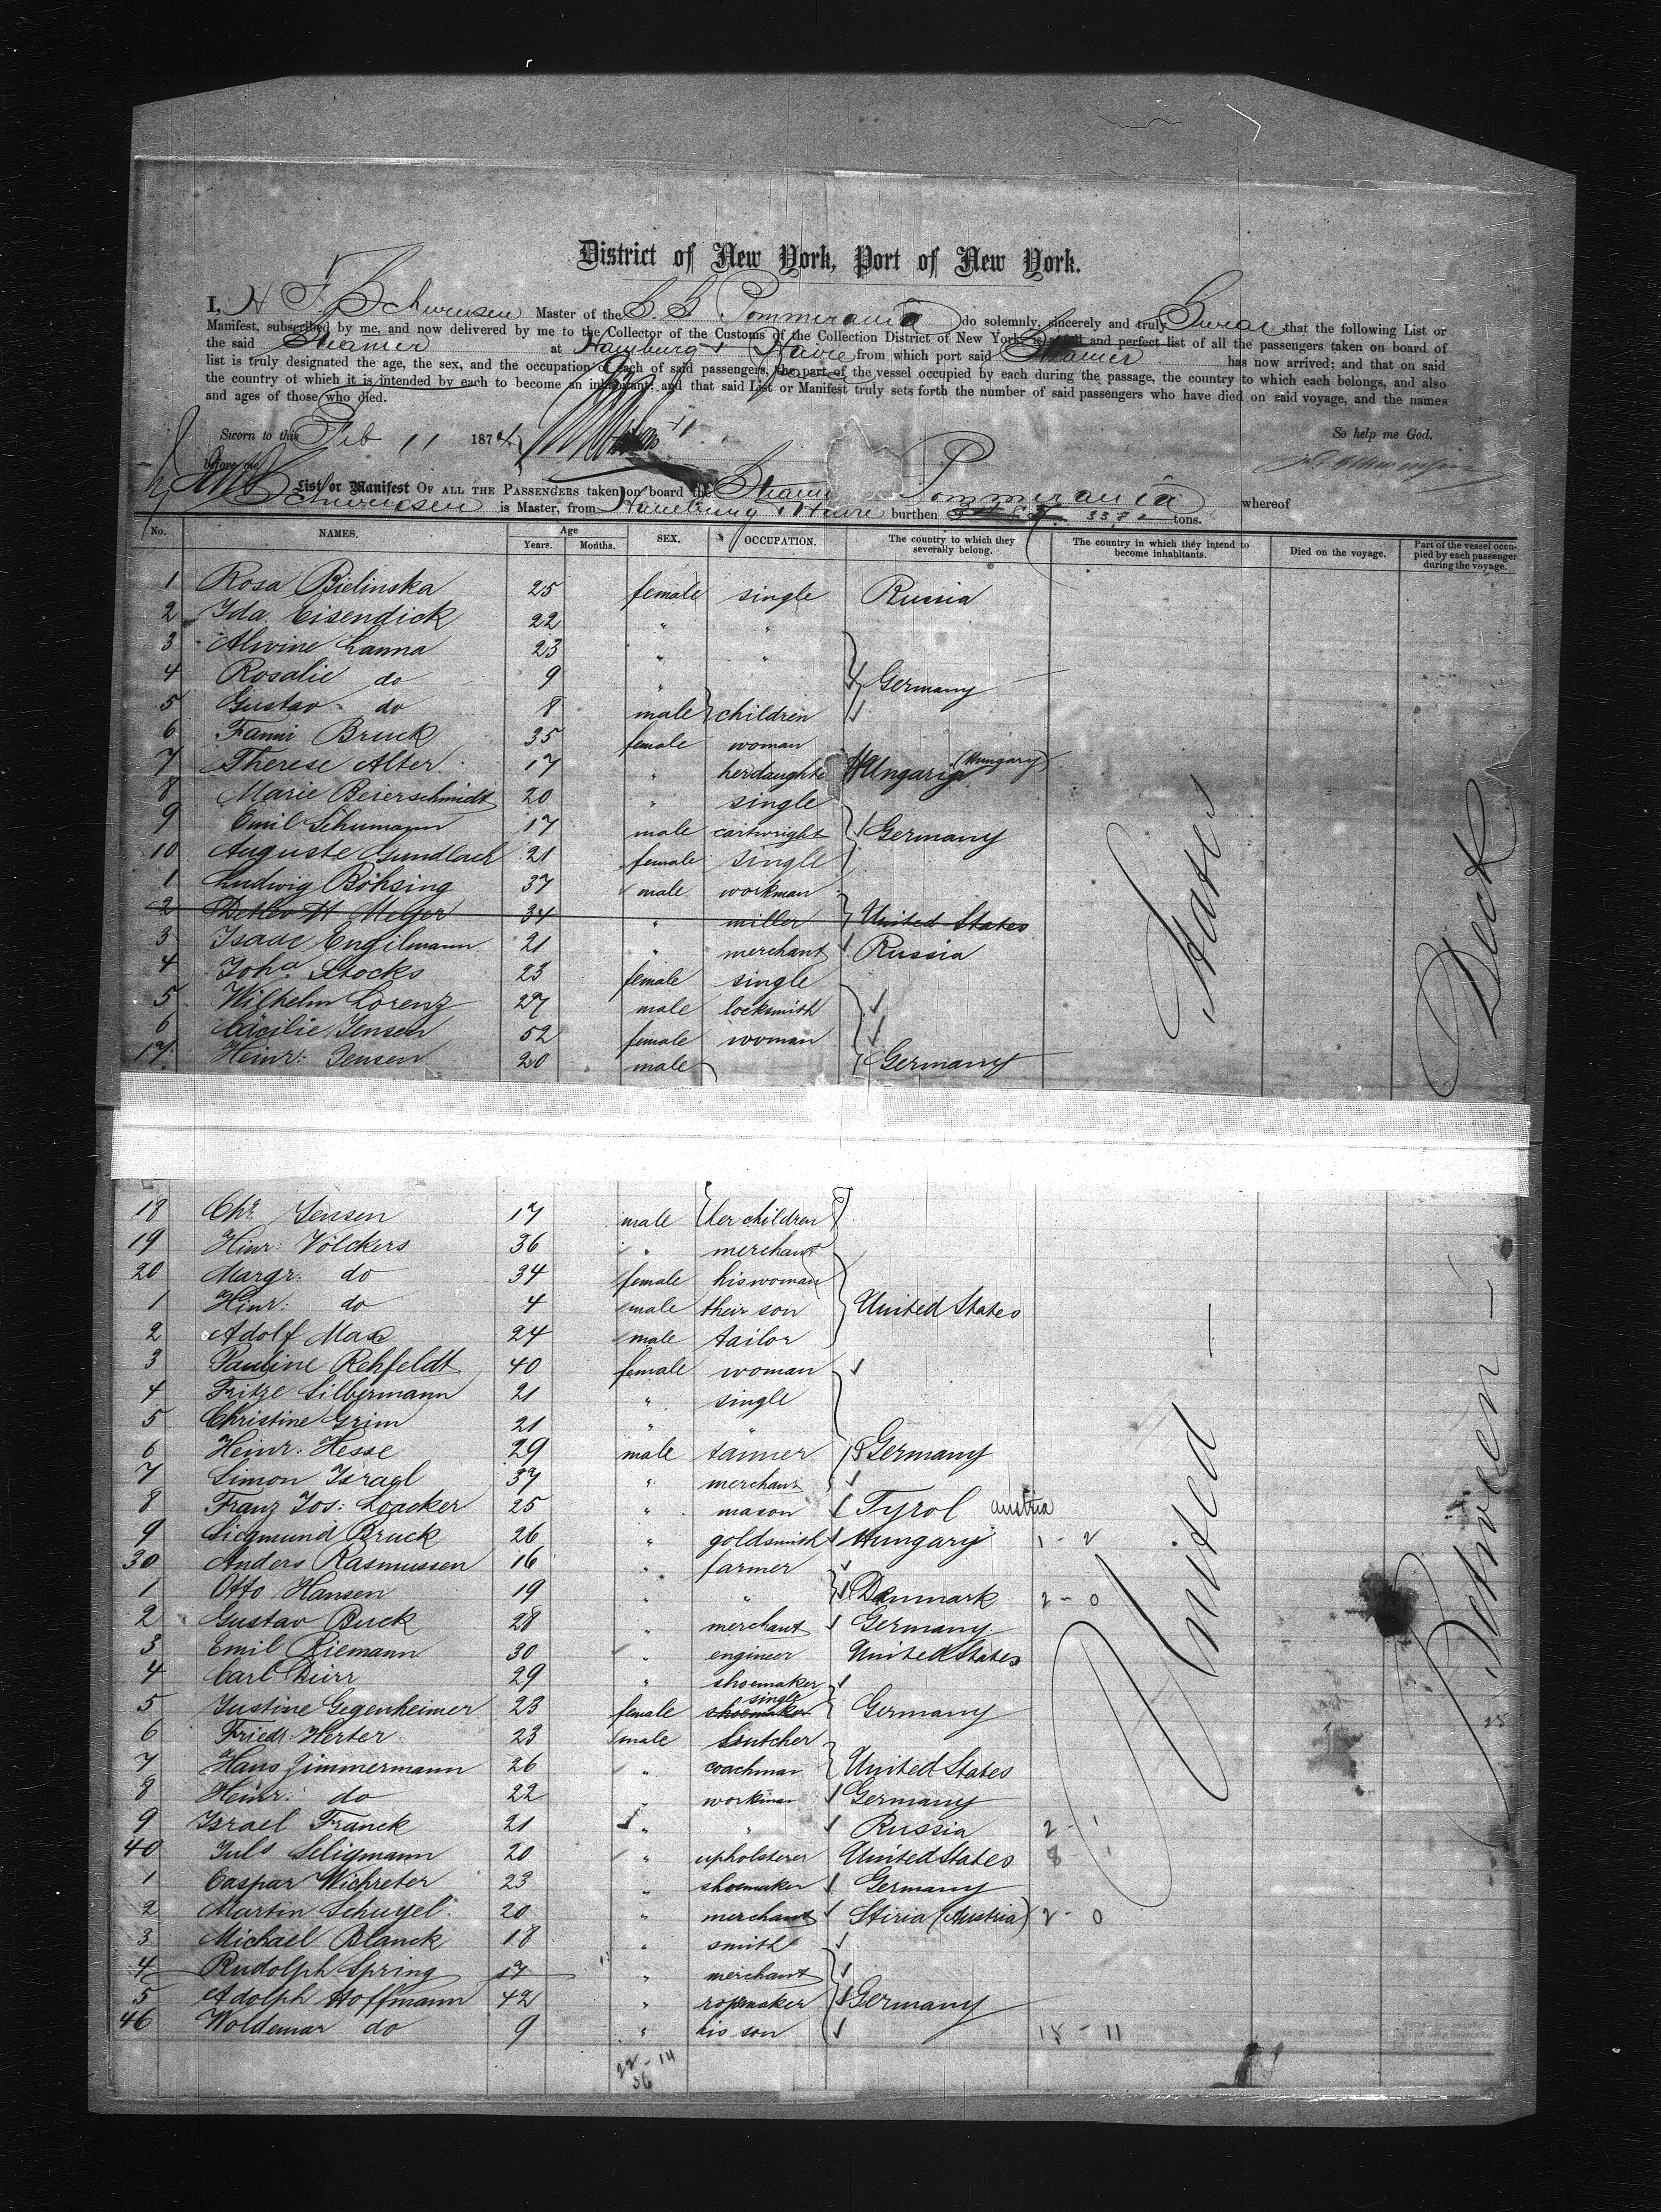 District of New York, Port of New York.
I, H F. Schwensen Master of the S. S. Pommerania do solemnly, sincerely and truly Swear that the following List or
Manifest, subscribed by me, and now delivered by me to the Collector of the Customs of the Collection District of New York, is a full and perfect list of all the passengers taken on board of
the said Steamer at Hamburg & Havre from which port said Steamer has now arrived; and that on said
list is truly designated the age, the sex, and the occupation of each of said passengers, the part of the vessel occupied by each during the passage, the country to which each belongs, and also
the country of which it is intended by each to become an inhabitant; and that said List or Manifest truly sets forth the number of said passengers who have died on said voyage, and the names
and ages of those who died.
Sworn to this Feb 11 1874 So help me God.
before me
List or Manifest OF ALL THE PASSENGERS taken on board the Steamer Pommerania whereof
Schwensen is Master, from Hamburg & Havre burthen 3382 tons.
No. NAMES. Age Years. Months. SEX. OCCUPATION. The country to which they severally belong. The country in which they intend to become inhabitants. Died on the voyage. Part of the vessel occupied by each passenger during the voyage.
1 Rosa Bielinska 25 female single Russia
2 Ida Eisendick 22 " "
3 Alwine Lanna 23 " "
4 Rosalie do 9 " Germany
5 Gustav do 8 male children
6 Fanni Bruck 35 female woman
7 Therese Alter 17 " her daughter Hungaria (Hungary)
8 Marie Beierschmidt 20 " single
9 Emil Schumann 17 male cartwright Germany
10 Auguste Gundlach 21 female single
1 Ludwig Böhsing 37 male workman
2 Detlev H Meyer 34 " miller United States
3 Isaac Engilmann 21 " merchant Russia
4 Joha Stocks 23 female single
5 Wilhelm Lorenz 27 male locksmith
6 Cäcilie Jensen 52 female woman
17 Heinr: Jensen 20 male Germany
18 Chr Jensen 17 male her children
19 Hinr: Völckers 36 " merchant
20 Margr. do 34 female his woman
1 Hinr: do 4 male their son United States
2 Adolf Max 24 male tailor
3 Pauline Rehfeldt 40 female woman
4 Fritze Silbermann 21 " single
5 Christine Grim 21 "
6 Heinr. Hesse 29 male tanner Germany
7 Simon Israel 37 " merchant
8 Franz Jos: Loacker 25 " mason Tyrol Austria
9 Siegmund Bruck 26 " goldsmith Hungary 1 - 2
30 Anders Rasmussen 16 " farmer
1 Otto Hansen 19 " " Denmark 2 - 0
2 Gustav Buck 28 " merchant Germany
3 Emil Riemann 30 " engineer United States
4 Carl Dürr 29 " shoemaker
5 Justine Gegenheimer 23 female shoemaker single Germany
6 Friedr Herter 23 male butcher
7 Hans Zimmermann 26 " coachman United States
8 Heinr: do 22 " workman Germany
9 Israel Franck 21 " " Russia 2 - 1
40 Juls Seligmann 20 " upholsterer United States 8 - 1
1 Caspar Wichreter 23 " shoemaker Germany
2 Martin Schugel 20 " merchant Stiria (Austria) 2 - 0
3 Michael Blanck 18 " smith
4 Rudolph Spring 17 " merchant
5 Adolph Hoffmann 42 " ropemaker Germany
46 Woldemar do 9 " his son 18 - 11
22 - 14
36
United States
Between Deck